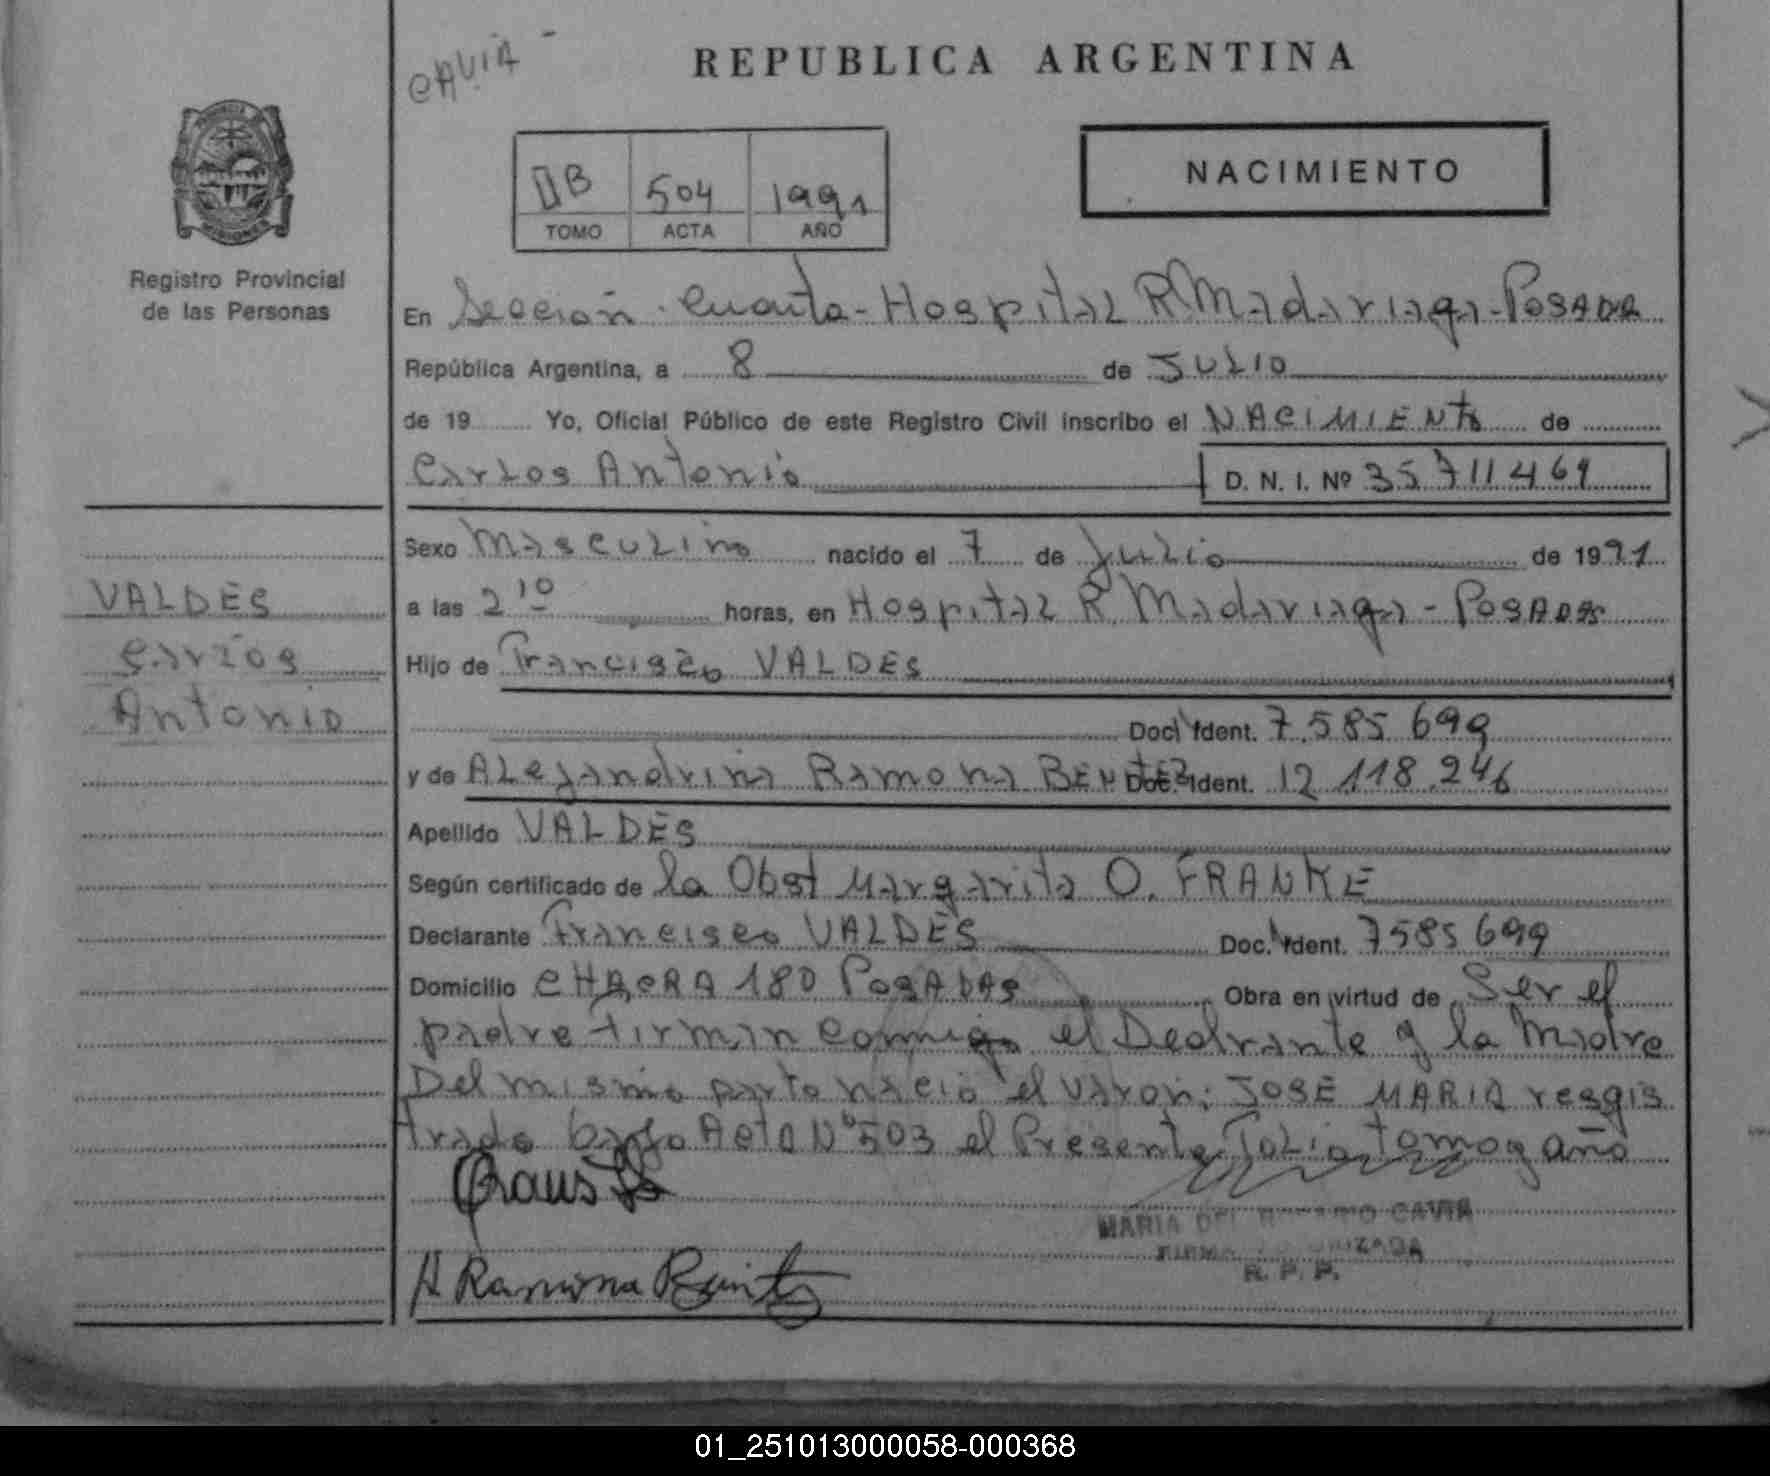 CAVIA -
REPUBLICA ARGENTINA
NACIMIENTO
II B 504 1991
TOMO ACTA AÑO
Registro Provincial
de las Personas
En Sección Cuarta - Hospital R Madariaga - POSADAS
República Argentina, a 8 de JULIO
de 19 Yo, Oficial Público de este Registro Civil inscribo el NACIMIENTO de
Carlos Antonio D. N. I. Nº 35 711 469
Sexo Masculino nacido el 7 de Julio de 1991
a las 2 10 horas, en Hospital R. Madariaga - POSADAS
Hijo de Francisco VALDES
Doc. Ident. 7.585 699
y de Alejandrina Ramona BENITEZ Doc. Ident. 12 118.246
Apellido VALDES
Según certificado de la Obst Margarita O. FRANKE
Declarante Francisco VALDES Doc. Ident. 7585 699
Domicilio CHACRA 180 POSADAS Obra en virtud de Ser el
padre Firman conmigo el Declrante y la Madre
Del mismo parto nació el varon: JOSE MARIA resgis
trado bajo Acta Nº 503 el Presente Folio tomo y año
VALDES
Carlos
Antonio
A Ramona Benitez
MARIA DEL ROSARIO CAVIA
FIRMA AUTORIZADA
R. P. P.
01_251013000058-000368